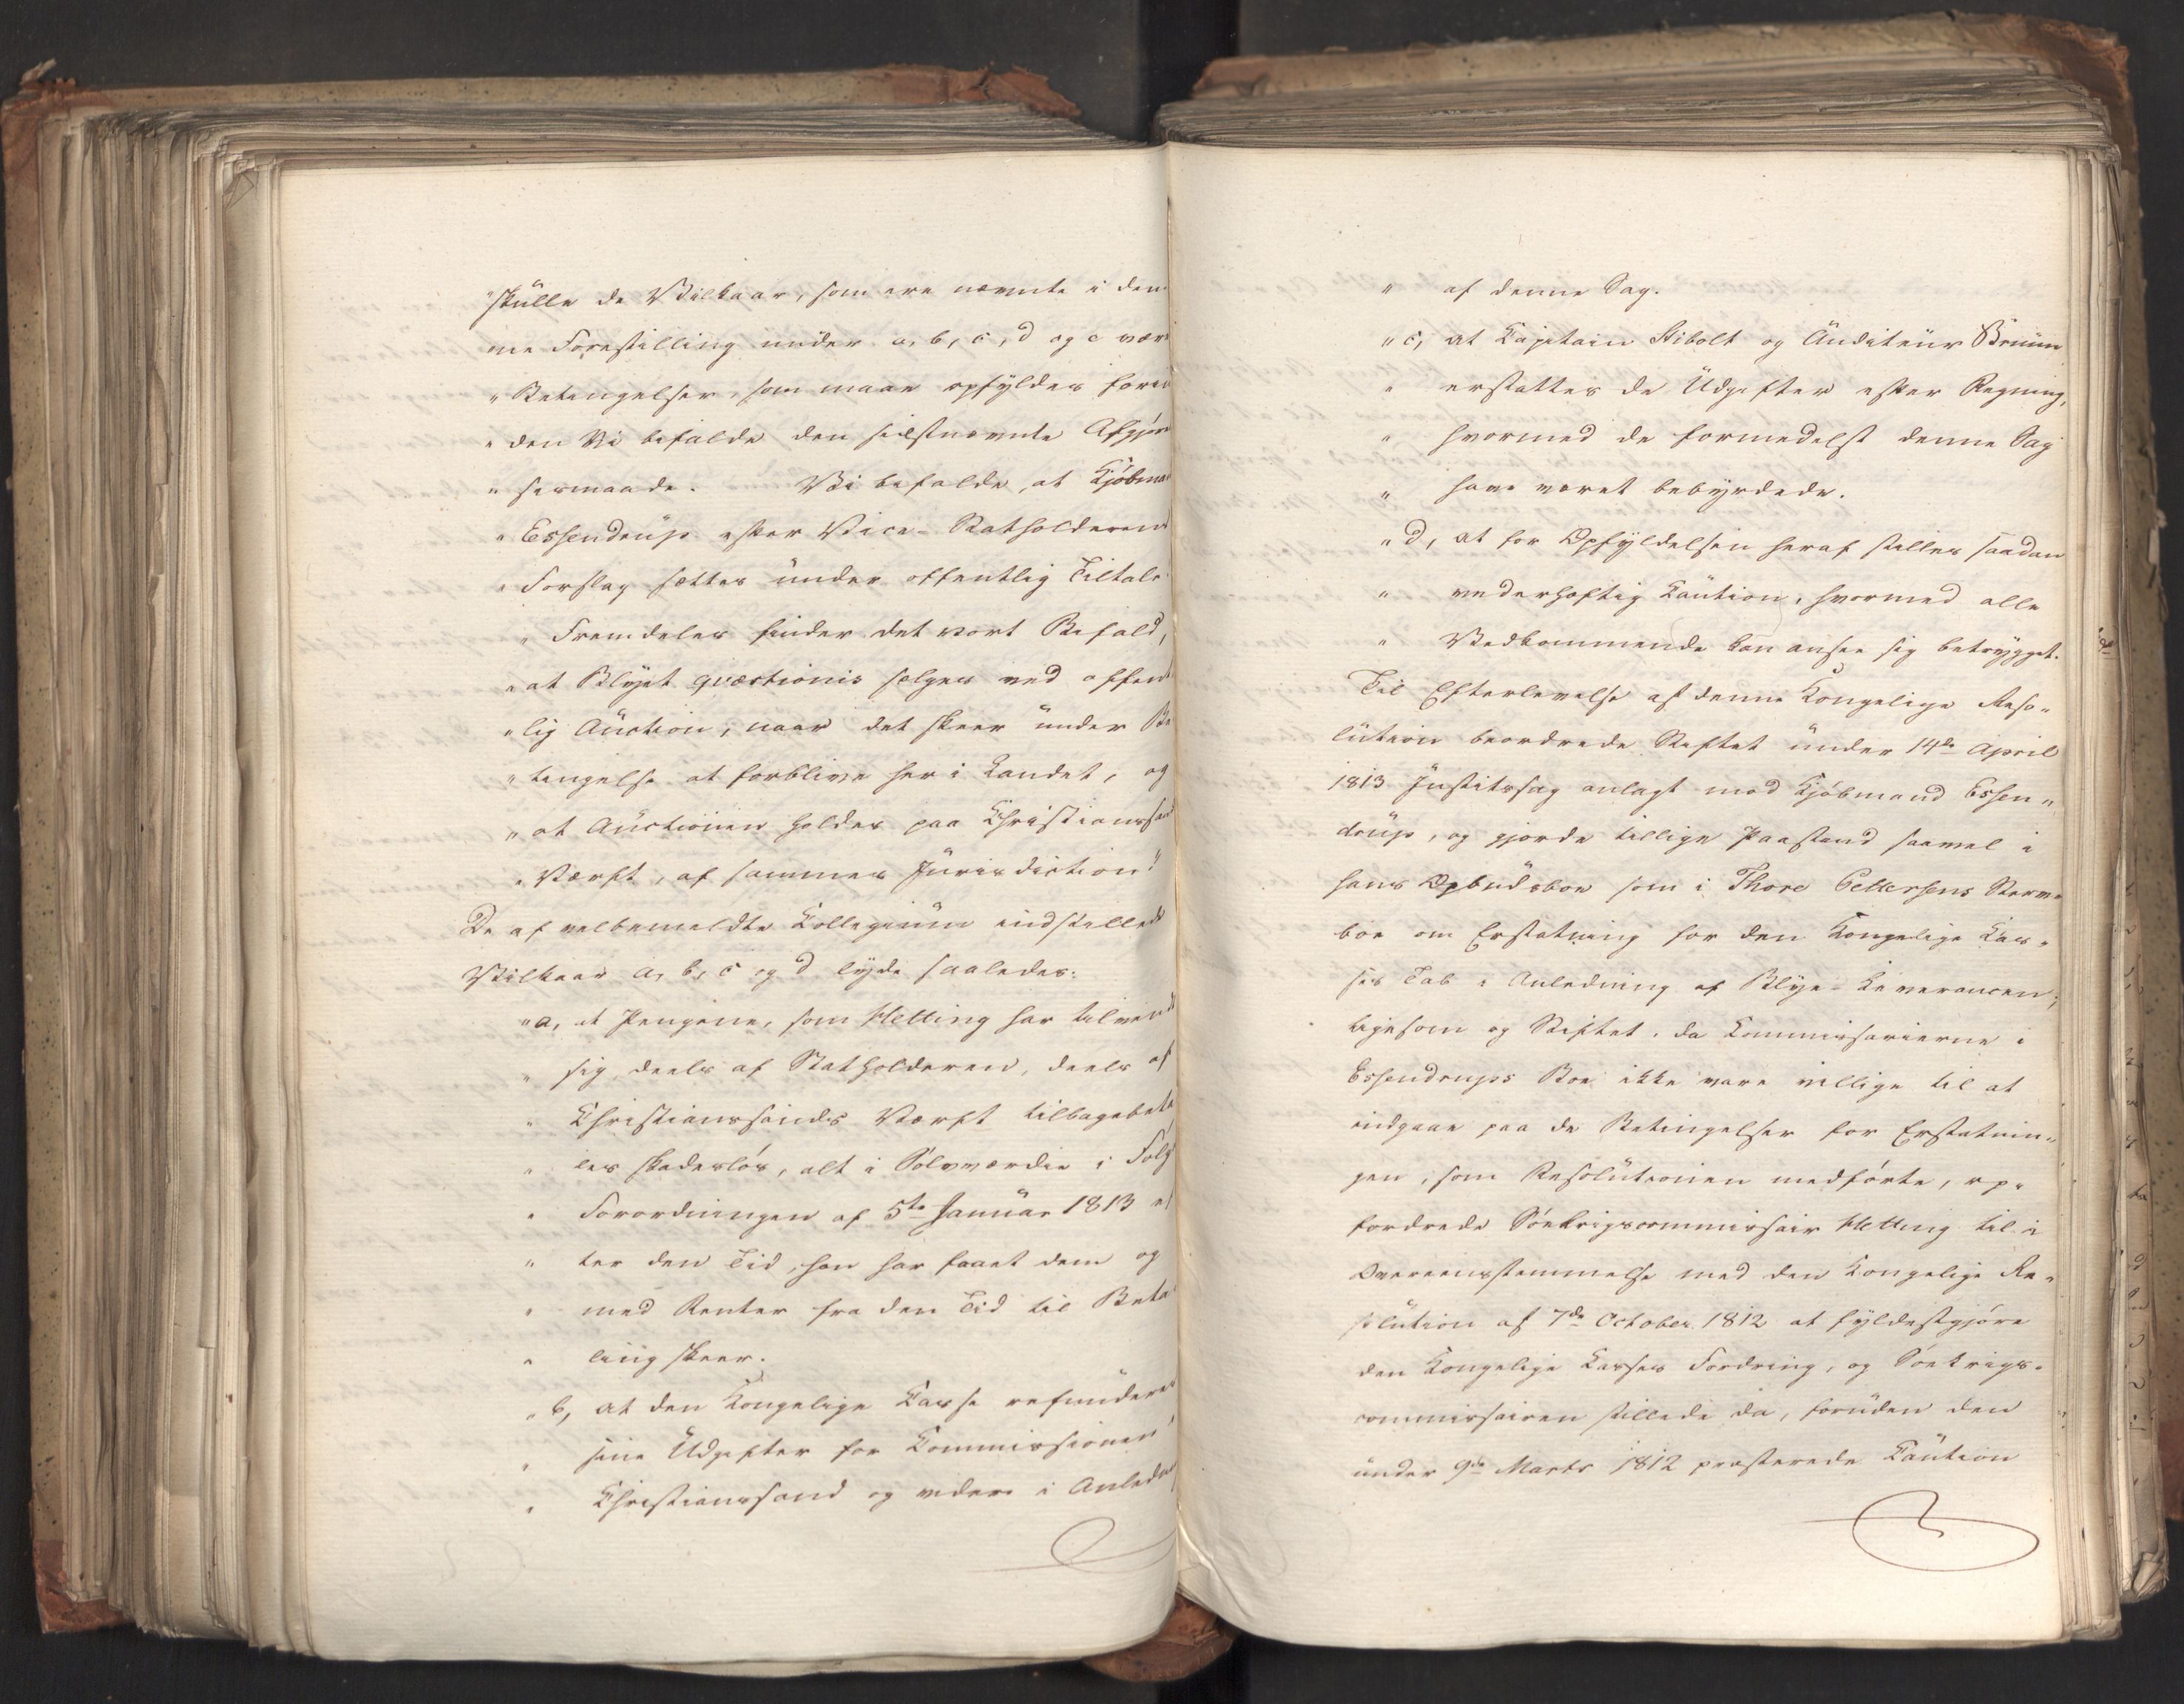 "skulle de Vilkaar, som ere nævnte i den
ne Forestilling under a, b, c, d og e vær
" Betingelser, som maae opfyldes foren
" den Vi befalde den sidstnævnte Afgjør
" sesmaade. Vi befalde, at Kjøbma
" Essendrup efter Vice-Statholderens
" Forslag sættes under offentlig Tiltale.
" Fremdeles finder det vort Bifald,
" at Blyet qvæstionis sælges ved offent
" lig Auction, naar det skeer under Be
" tingelse at forblive her i Landet, og
" at Auctionen holdes paa Christianssand
" Værft, af sammes Jurisdiction"
De af velbemeldte Collegium indstillede
Vilkaar a, b, c og d lyde saaledes:
" a, at Pengene, som Hetting har tilvendt
" sig, deels af Statholderen, deels af
" Christianssands Værft tilbagebeta
" les skadesløs, alt i Sølvværdie i Følg
" Forordningen af 5te Januar 1813 ef
" ter den Tid, han har faaet dem og
" med Renter fra den Tid til Beta
" ling skeer.
" b, at den Kongelige Casse refunderes
" sine Udgifter for Commissionen i
" Christianssand og videre i Anledn
" af denne Sag.
" c, at Capitain Stibolt og Auditeur Bruun
" erstattes de Udgifter efter Regning,
" hvormed de formedelst denne Sag
" have været bebyrdede.
" d, at for Opfyldelsen heraf stilles saadan
" vederhæftig Caution, hvormed alle
" Vedkommende kan ansee sig betrygget.
Til Efterlevelse af denne Kongelige Reso„
lution beordrede Stiftet under 14de April
1813 Justitssag anlagt mod Kjøbmand Essen„
drup, og gjorde tillige Paastand saavel i
hans Opbudsboe som i Thore Pettersens Sterv„
boe om Erstatning for den Kongelige Cas„
ses Tab i Anledning af Blye-Leverancen;
ligesom og Stiftet, da Commissarierne i
Essendrups Boe ikke vare villige til at
indgaae paa de Betingelser for Erstatnin„
gen, som Resolutionen medførte, op„
fordrede Søekrigscommissair Hetting til i
Overeensstemmelse med den Kongelige Re„
solution af 7de October 1812 at fyldestgjøre
den Kongelige Casses Fordring, og Søekrigs„
commissairen stillede da, foruden den
under 9de Marts 1812 præsterede Caution